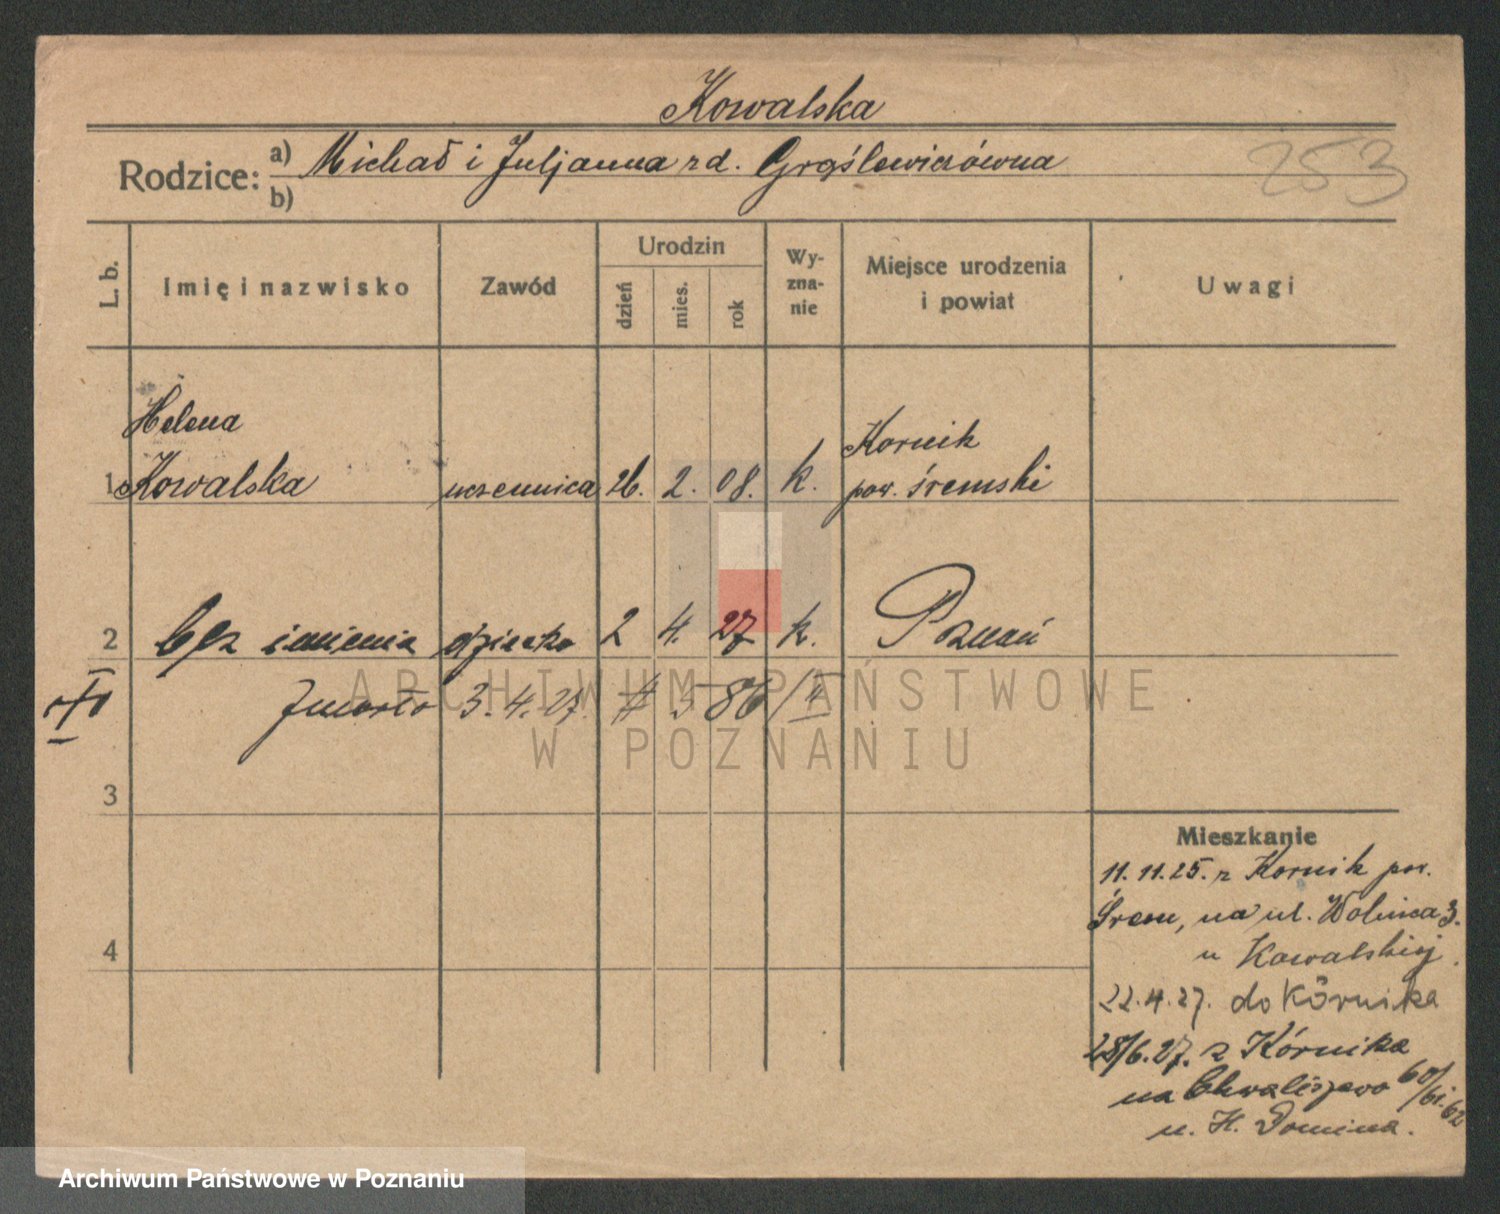 Kowalska
Rodzice: a) Michał i Juljanna z d. Grąślewiczówna
b)
253
L. b. Imię i nazwisko Zawód Urodzin dzień mies. rok Wyznanie Miejsce urodzenia i powiat Uwagi
Helena Kornik
1 Kowalska uczennica 26. 2. 08. k. pow. śremski
2 bez imienia dziecko 2 4. 27 k. Poznań
Zmarło 3.4.27. # 586/II
3
4
Mieszkanie
11.11.25. z Kornik pow.
Śrem, na ul. Wolnica 3.
u Kowalskiej.
22.4.27. do Kórnika
28/6.27. z Kórnika
na Chwaliszewo 60/61.62
u. H. Domina.
ARCHIWUM PAŃSTWOWE
W POZNANIU
Archiwum Państwowe w Poznaniu